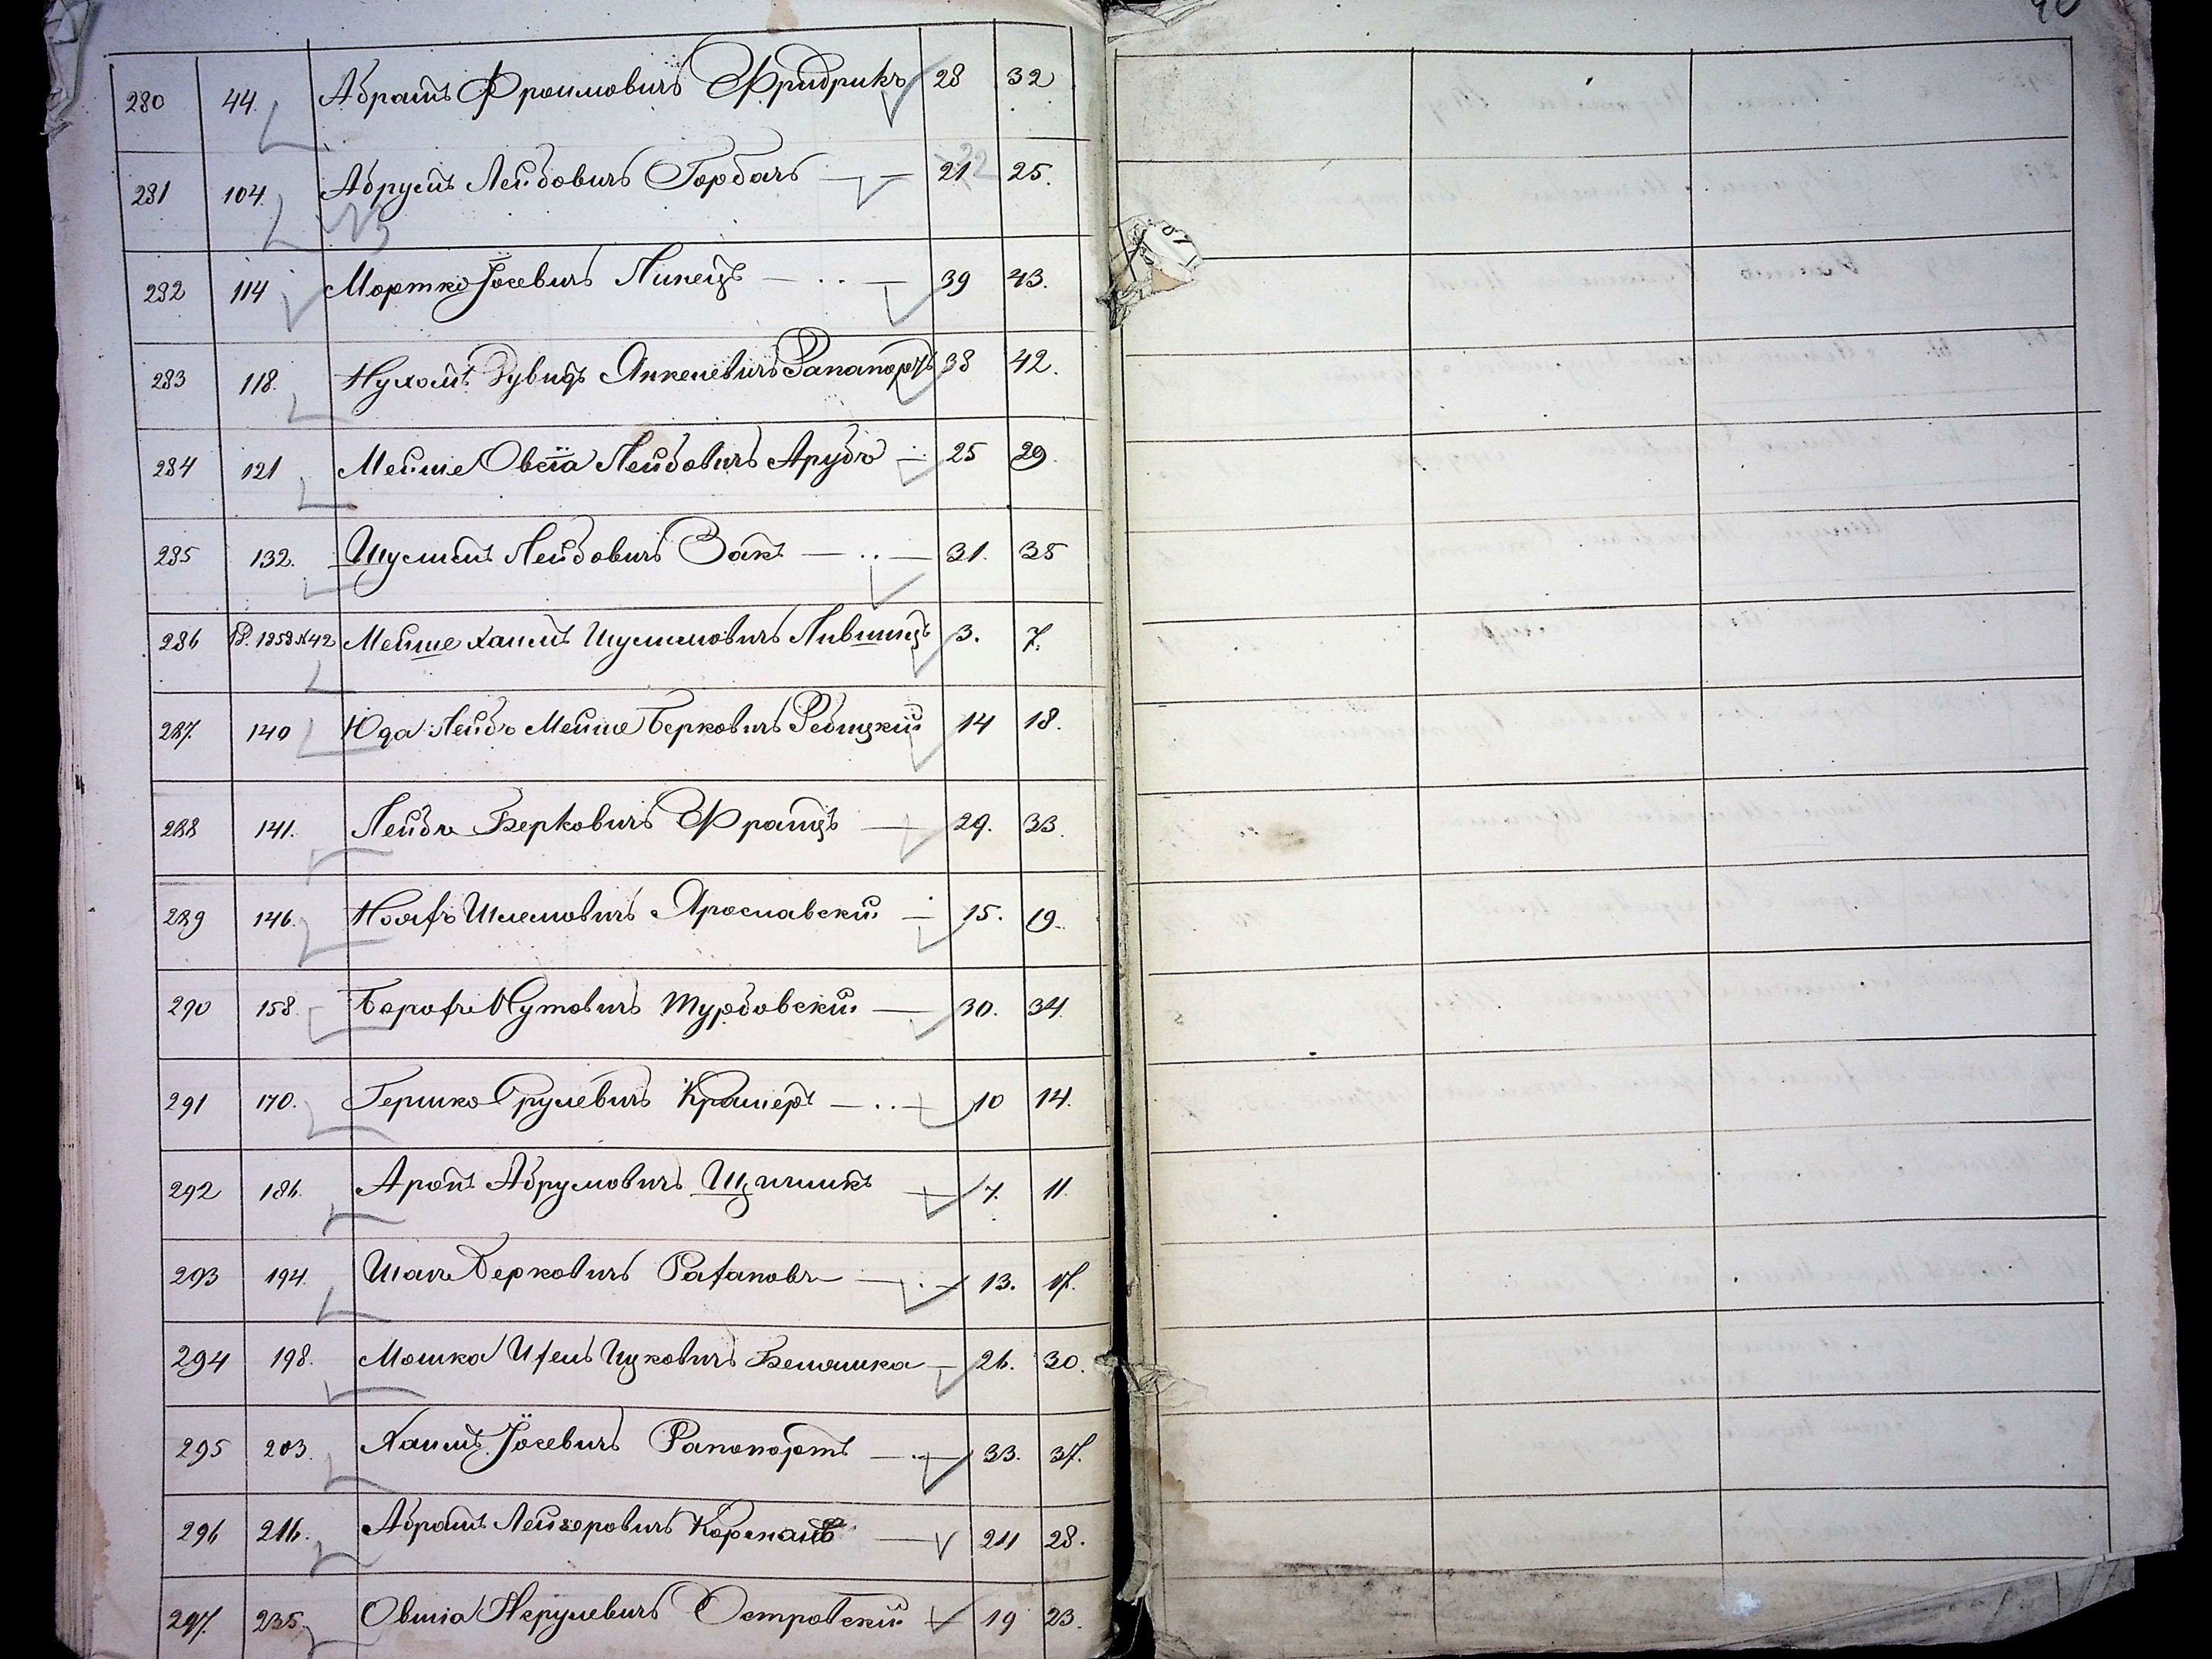 40
280 44. Абрамъ Фроимовичъ Фридрикъ 28 32
281 104. Абрумъ Лейбовичъ Горбачъ — — 21 22 25.
282 114 Мортко Іосевичъ Липецъ — .. — 39 43.
283 118. Нухомъ Дувидъ Янкелевичъ Рапапортъ 38 42.
284 121 Мейше Овсія Лейбовичъ Арубъ — 25 29.
285 132. Шулимъ Лейбовичъ Закъ — .. — 31. 35
286 1858 №42 Мейше Хаимъ Шулимовичъ Лившицъ 3. 7.
287. 140 Юда Лейбъ Мейше Берковичъ Ребицкій 14 18.
288 141. Лейбъ Берковичъ Францъ — 29. 33.
289 146. Шлемовичъ Ярославскій — 15. 19.
290 158. Борохъ Нутовичъ Турбовскій — 30. 34.
291 170. Гершко Срулевичъ Крамеръ — .. — 10 14.
292 186. Аронъ Абрумовичъ Щигликъ — 7. 11.
293 194. Берковичъ — . — 13. 17.
294 198. Мошка Ицковичъ — 26. 30.
295 203. Хаимъ Іосевичъ Рапопортъ — .. — 33. 37.
296 216. Абрамъ Лейзеровичъ — 24 28.
297. 235. Овшія Исрулевичъ Островскій 19 23.